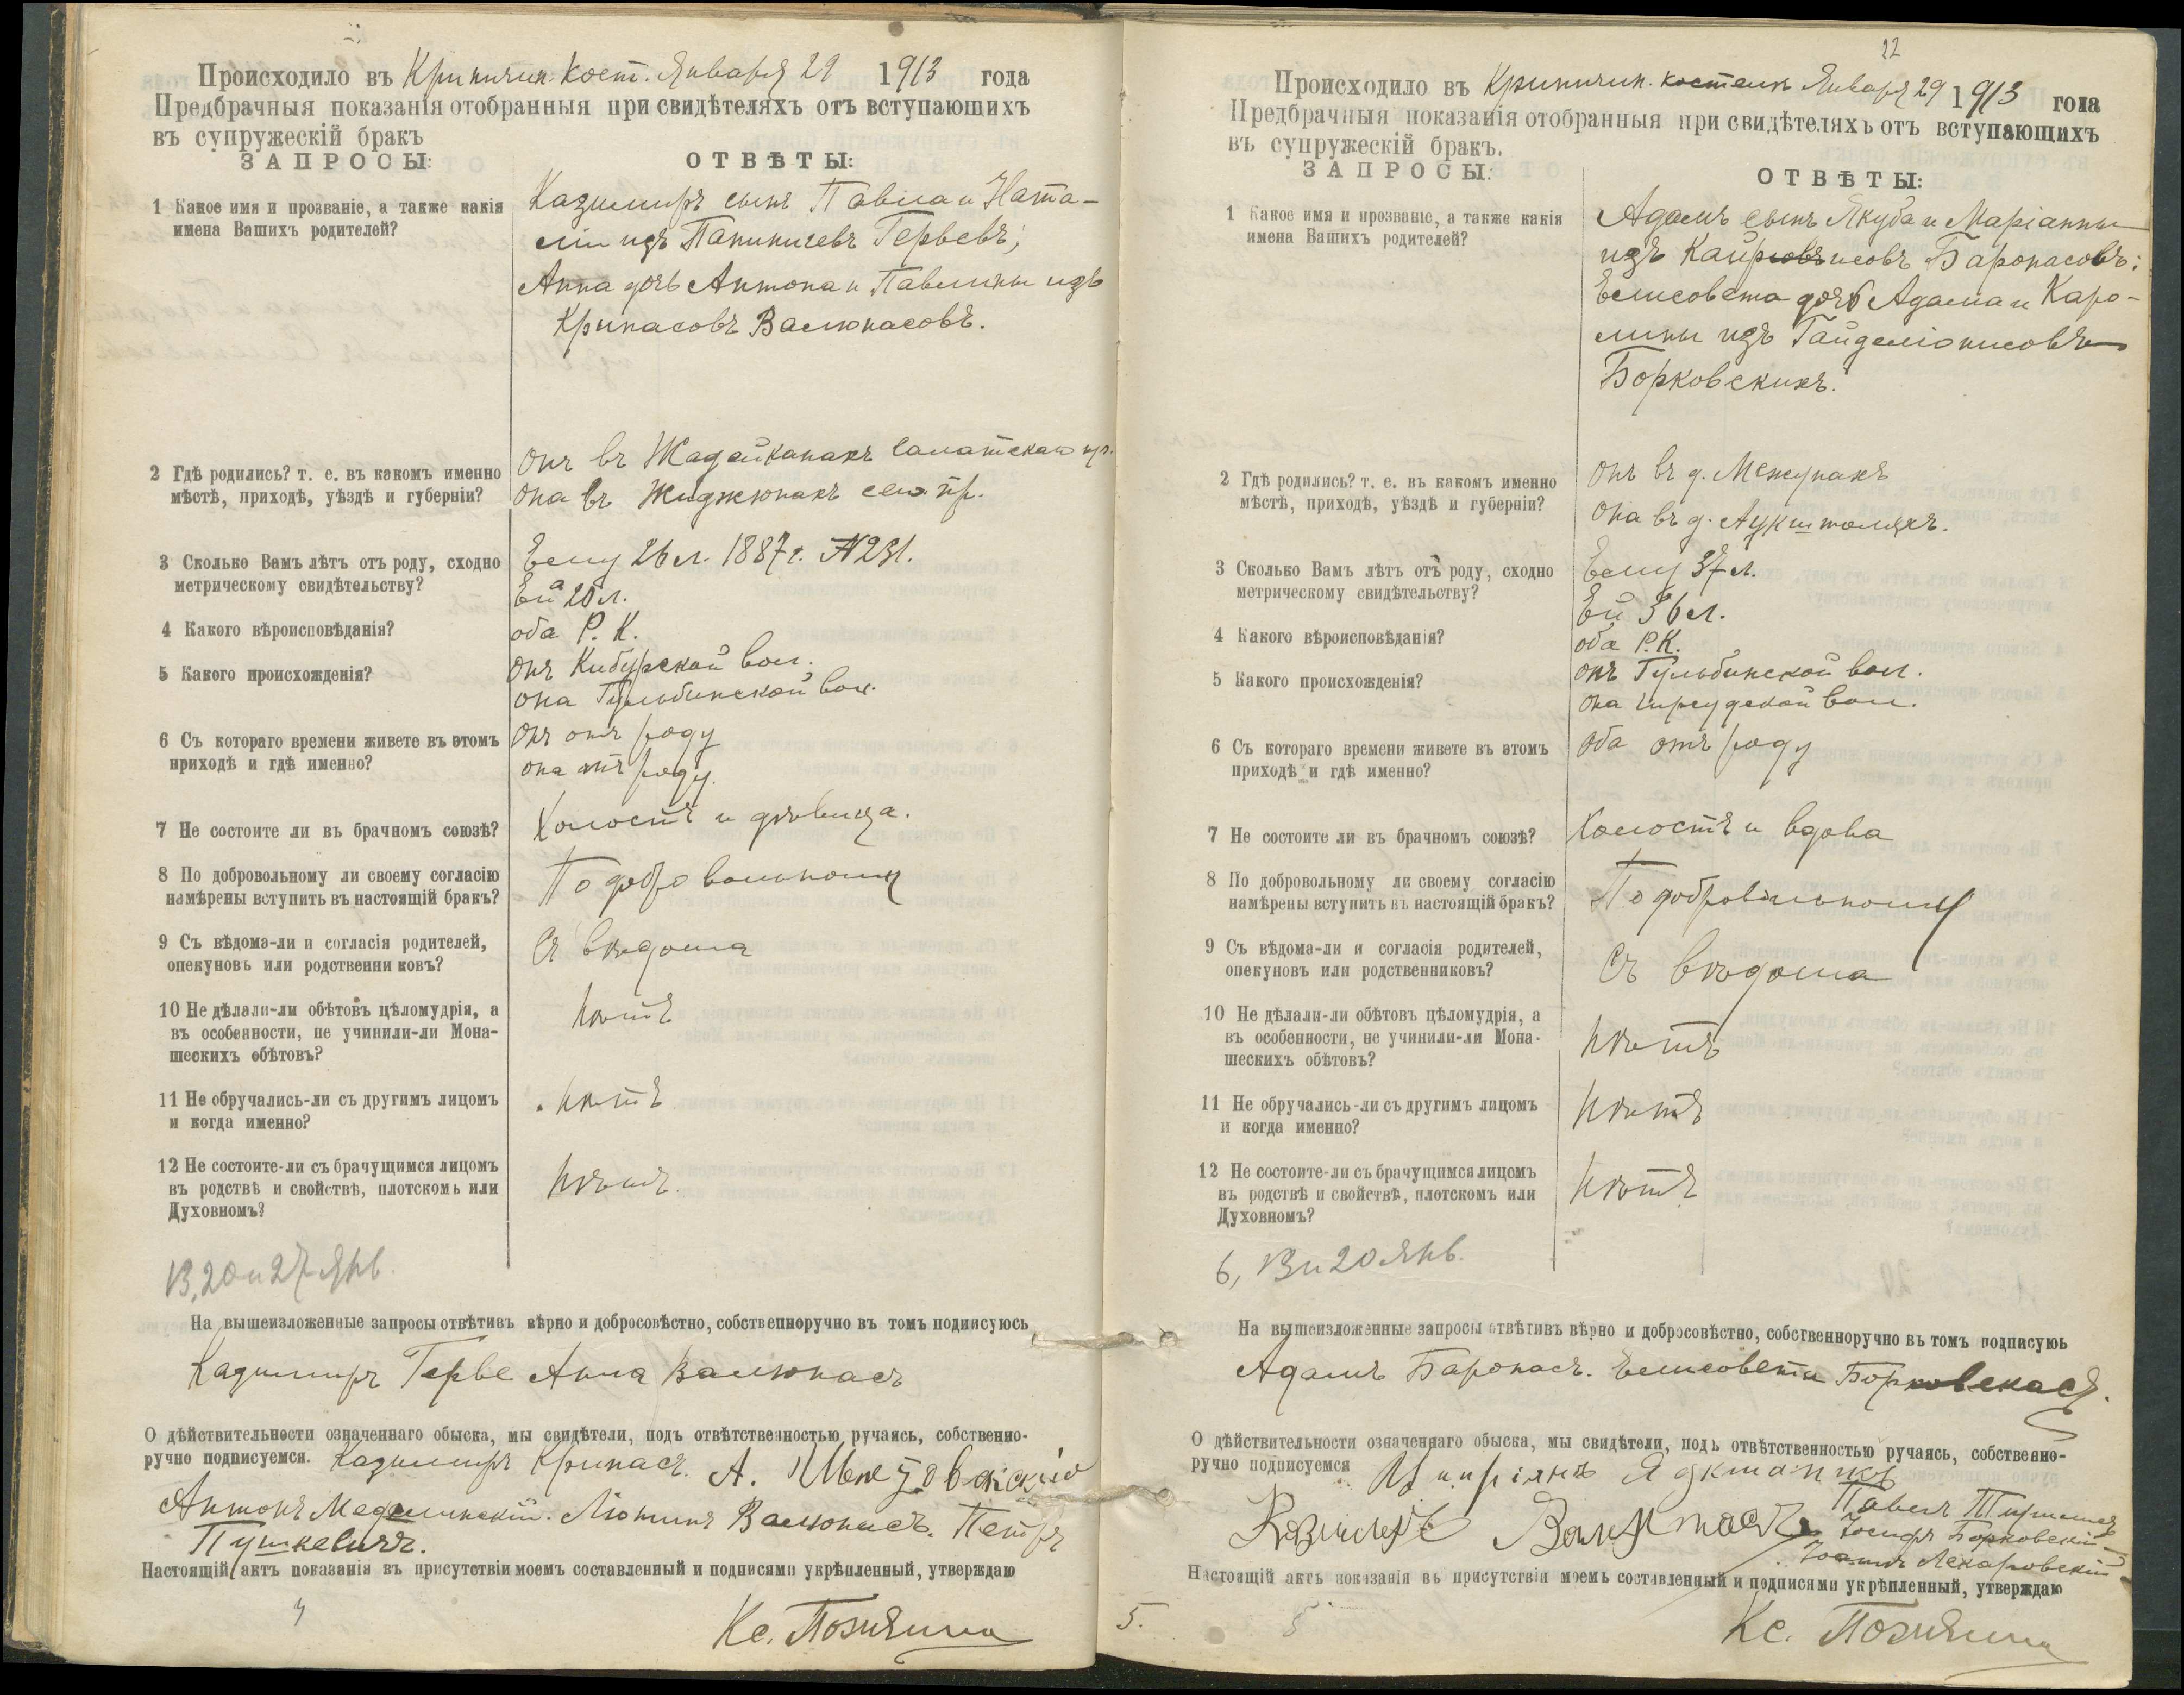 Происходило въ Крипичин. Кост. Января 29 1913 года
Предбрачныя показанія отобранныя при свидѣтеляхъ отъ вступающихъ
въ супружескій бракъ
ЗАПРОСЫ: ОТВѢТЫ:
1 Какое имя и прозваніе, а также какія
имена Вашихъ родителей?
Казимиръ сынъ Павла и Ната-
ліи изъ Гервевъ;
Анна дочь Антона и Павлины изъ
Крипасовъ Валюнасовъ.
2 Гдѣ родились? т. е. въ какомъ именно
мѣстѣ, приходѣ, уѣздѣ и губерніи?
Онъ въ Жадейканахъ Салатскаго пр.
Она въ Жиджюнахъ сего пр.
3 Сколько Вамъ лѣтъ отъ роду, сходно
метрическому свидѣтельству?
Ему 26 л. 1887 г. N 231.
Ей 20 л.
4 Какого вѣроисповѣданія?
оба Р. К.
5 Какого происхожденія?
Онъ Кибурской вол.
она Гульбинской вол.
6 Съ котораго времени живете въ этомъ
приходѣ и гдѣ именно?
Онъ отъ роду
она отъ роду.
7 Не состоите ли въ брачномъ союзѣ?
Холостъ и дѣвица.
8 По добровольному ли своему согласію
намѣрены вступить въ настоящій бракъ?
По добровольному
9 Съ вѣдома-ли и согласія родителей,
опекуновъ или родственниковъ?
Съ вѣдома
10 Не дѣлали-ли обѣтовъ цѣломудрія, а
въ особенности, не учинили-ли Мона-
шескихъ обѣтовъ?
Нѣтъ
11 Не обручались-ли съ другимъ лицомъ
и когда именно?
Нѣтъ
12 Не состоите-ли съ брачущимся лицомъ
въ родствѣ и свойствѣ, плотскомъ или
Духовномъ?
Нѣтъ.
13, 20 и 27 Янв.
На вышеизложенные запросы отвѣтивъ вѣрно и добросовѣстно, собственноручно въ томъ подписуюсь
Казимиръ Герве Анна Валюнасъ
О дѣйствительности означеннаго обыска, мы свидѣтели, подъ отвѣтственностью ручаясь, собственно-
ручно подписуемся. Казимиръ Крипасъ. А.
Антонъ Меделинскій. Валюнасъ. Петръ
Пушкевичъ.
Настоящій актъ показанія въ присутствіи моемъ составленный и подписями укрѣпленный, утверждаю
Кс.
22
Происходило въ Крипичин. костелѣ Января 29 1913 года
Предбрачныя показанія отобранныя при свидѣтеляхъ отъ вступающихъ
въ супружескій бракъ.
ЗАПРОСЫ: ОТВѢТЫ:
1 Какое имя и прозваніе, а также какія
имена Вашихъ родителей?
Адамъ сынъ Якуба и Маріанны
изъ Баронасовъ;
Елисовета дочь Адама и Каро-
лины изъ Гайделіонисовъ
Борковскихъ.
2 Гдѣ родились? т. е. въ какомъ именно
мѣстѣ, приходѣ, уѣздѣ и губерніи?
Онъ въ д.
Она въ д. Аукштоляхъ.
3 Сколько Вамъ лѣтъ отъ роду, сходно
метрическому свидѣтельству?
Ему 37 л.
Ей 36 л.
4 Какого вѣроисповѣданія?
оба Р.К.
5 Какого происхожденія?
онъ Гульбинской вол.
она Гирсудской вол.
6 Съ котораго времени живете въ этомъ
приходѣ и гдѣ именно?
Оба отъ роду
7 Не состоите ли въ брачномъ союзѣ?
Холостъ и вдова
8 По добровольному ли своему согласію
намѣрены вступить въ настоящій бракъ?
По добровольному
9 Съ вѣдома-ли и согласія родителей,
опекуновъ или родственниковъ?
Съ вѣдома
10 Не дѣлали-ли обѣтовъ цѣломудрія, а
въ особенности, не учинили-ли Мона-
шескихъ обѣтовъ?
Нѣтъ
11 Не обручались-ли съ другимъ лицомъ
и когда именно?
Нѣтъ
12 Не состоите-ли съ брачущимся лицомъ
въ родствѣ и свойствѣ, плотскомъ или
Духовномъ?
Нѣтъ
6, 13 и 20 Янв.
На вышеизложенные запросы отвѣтивъ вѣрно и добросовѣстно, собственноручно въ томъ подписуюь
Адамъ Баронасъ. Елисовета Борковскасъ.
О дѣйствительности означеннаго обыска, мы свидѣтели, подъ отвѣтственностью ручаясь, собственно-
ручно подписуемся
Павелъ
Іосифъ Борковскій
Настоящій актъ показанія въ присутствіи моемъ составленный и подписями укрѣпленный, утверждаю
5.
Кс.